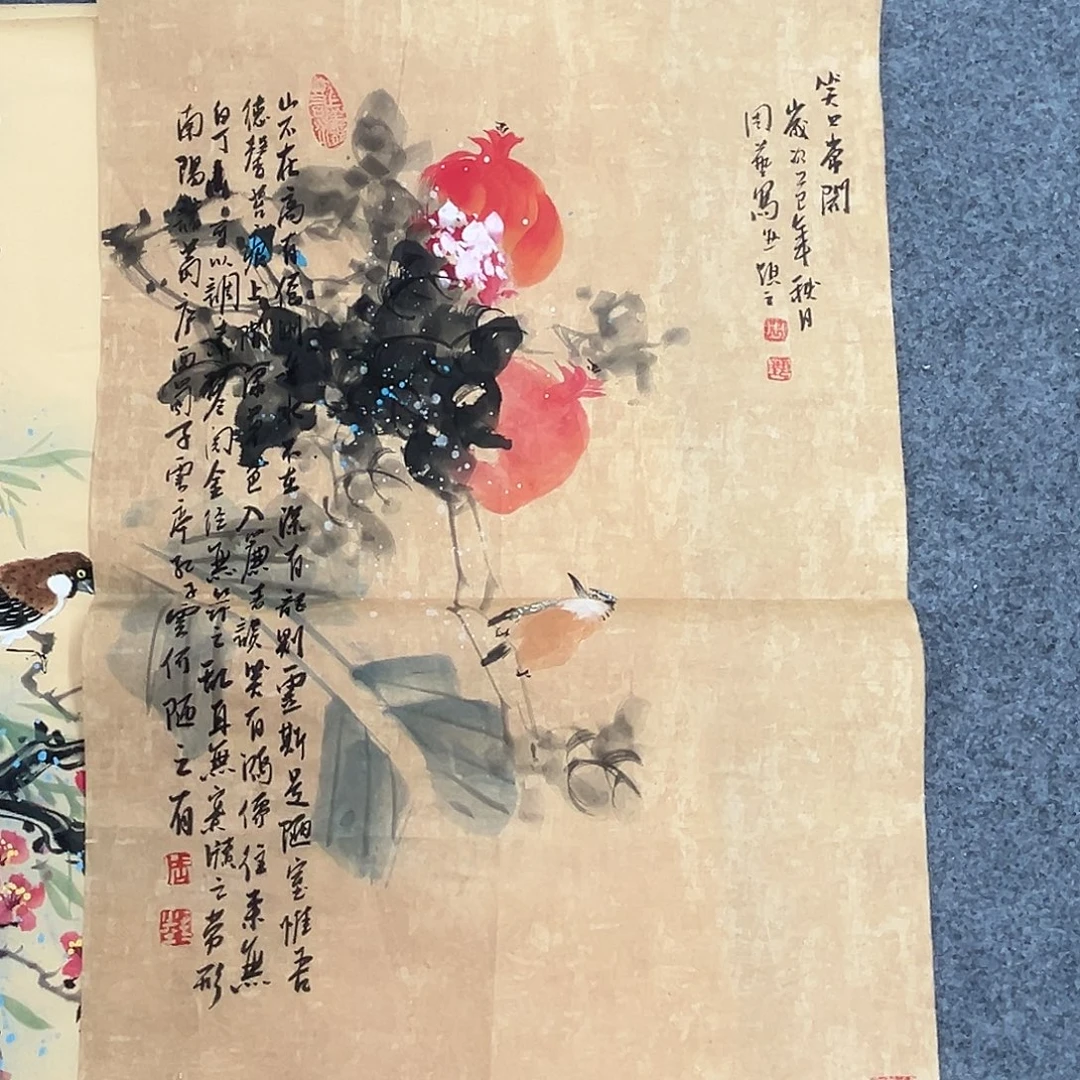 笑口常開
歲次乙巳年秋月
周藝寫並題之
山不在高有僊則名水不在深有龍則靈斯是陋室惟吾
德馨苔痕上階綠草色入簾青談笑有鴻儒往來無
白丁可以調素琴閱金經無絲竹之亂耳無案牘之勞形
南陽諸葛廬西蜀子雲亭孔子雲何陋之有